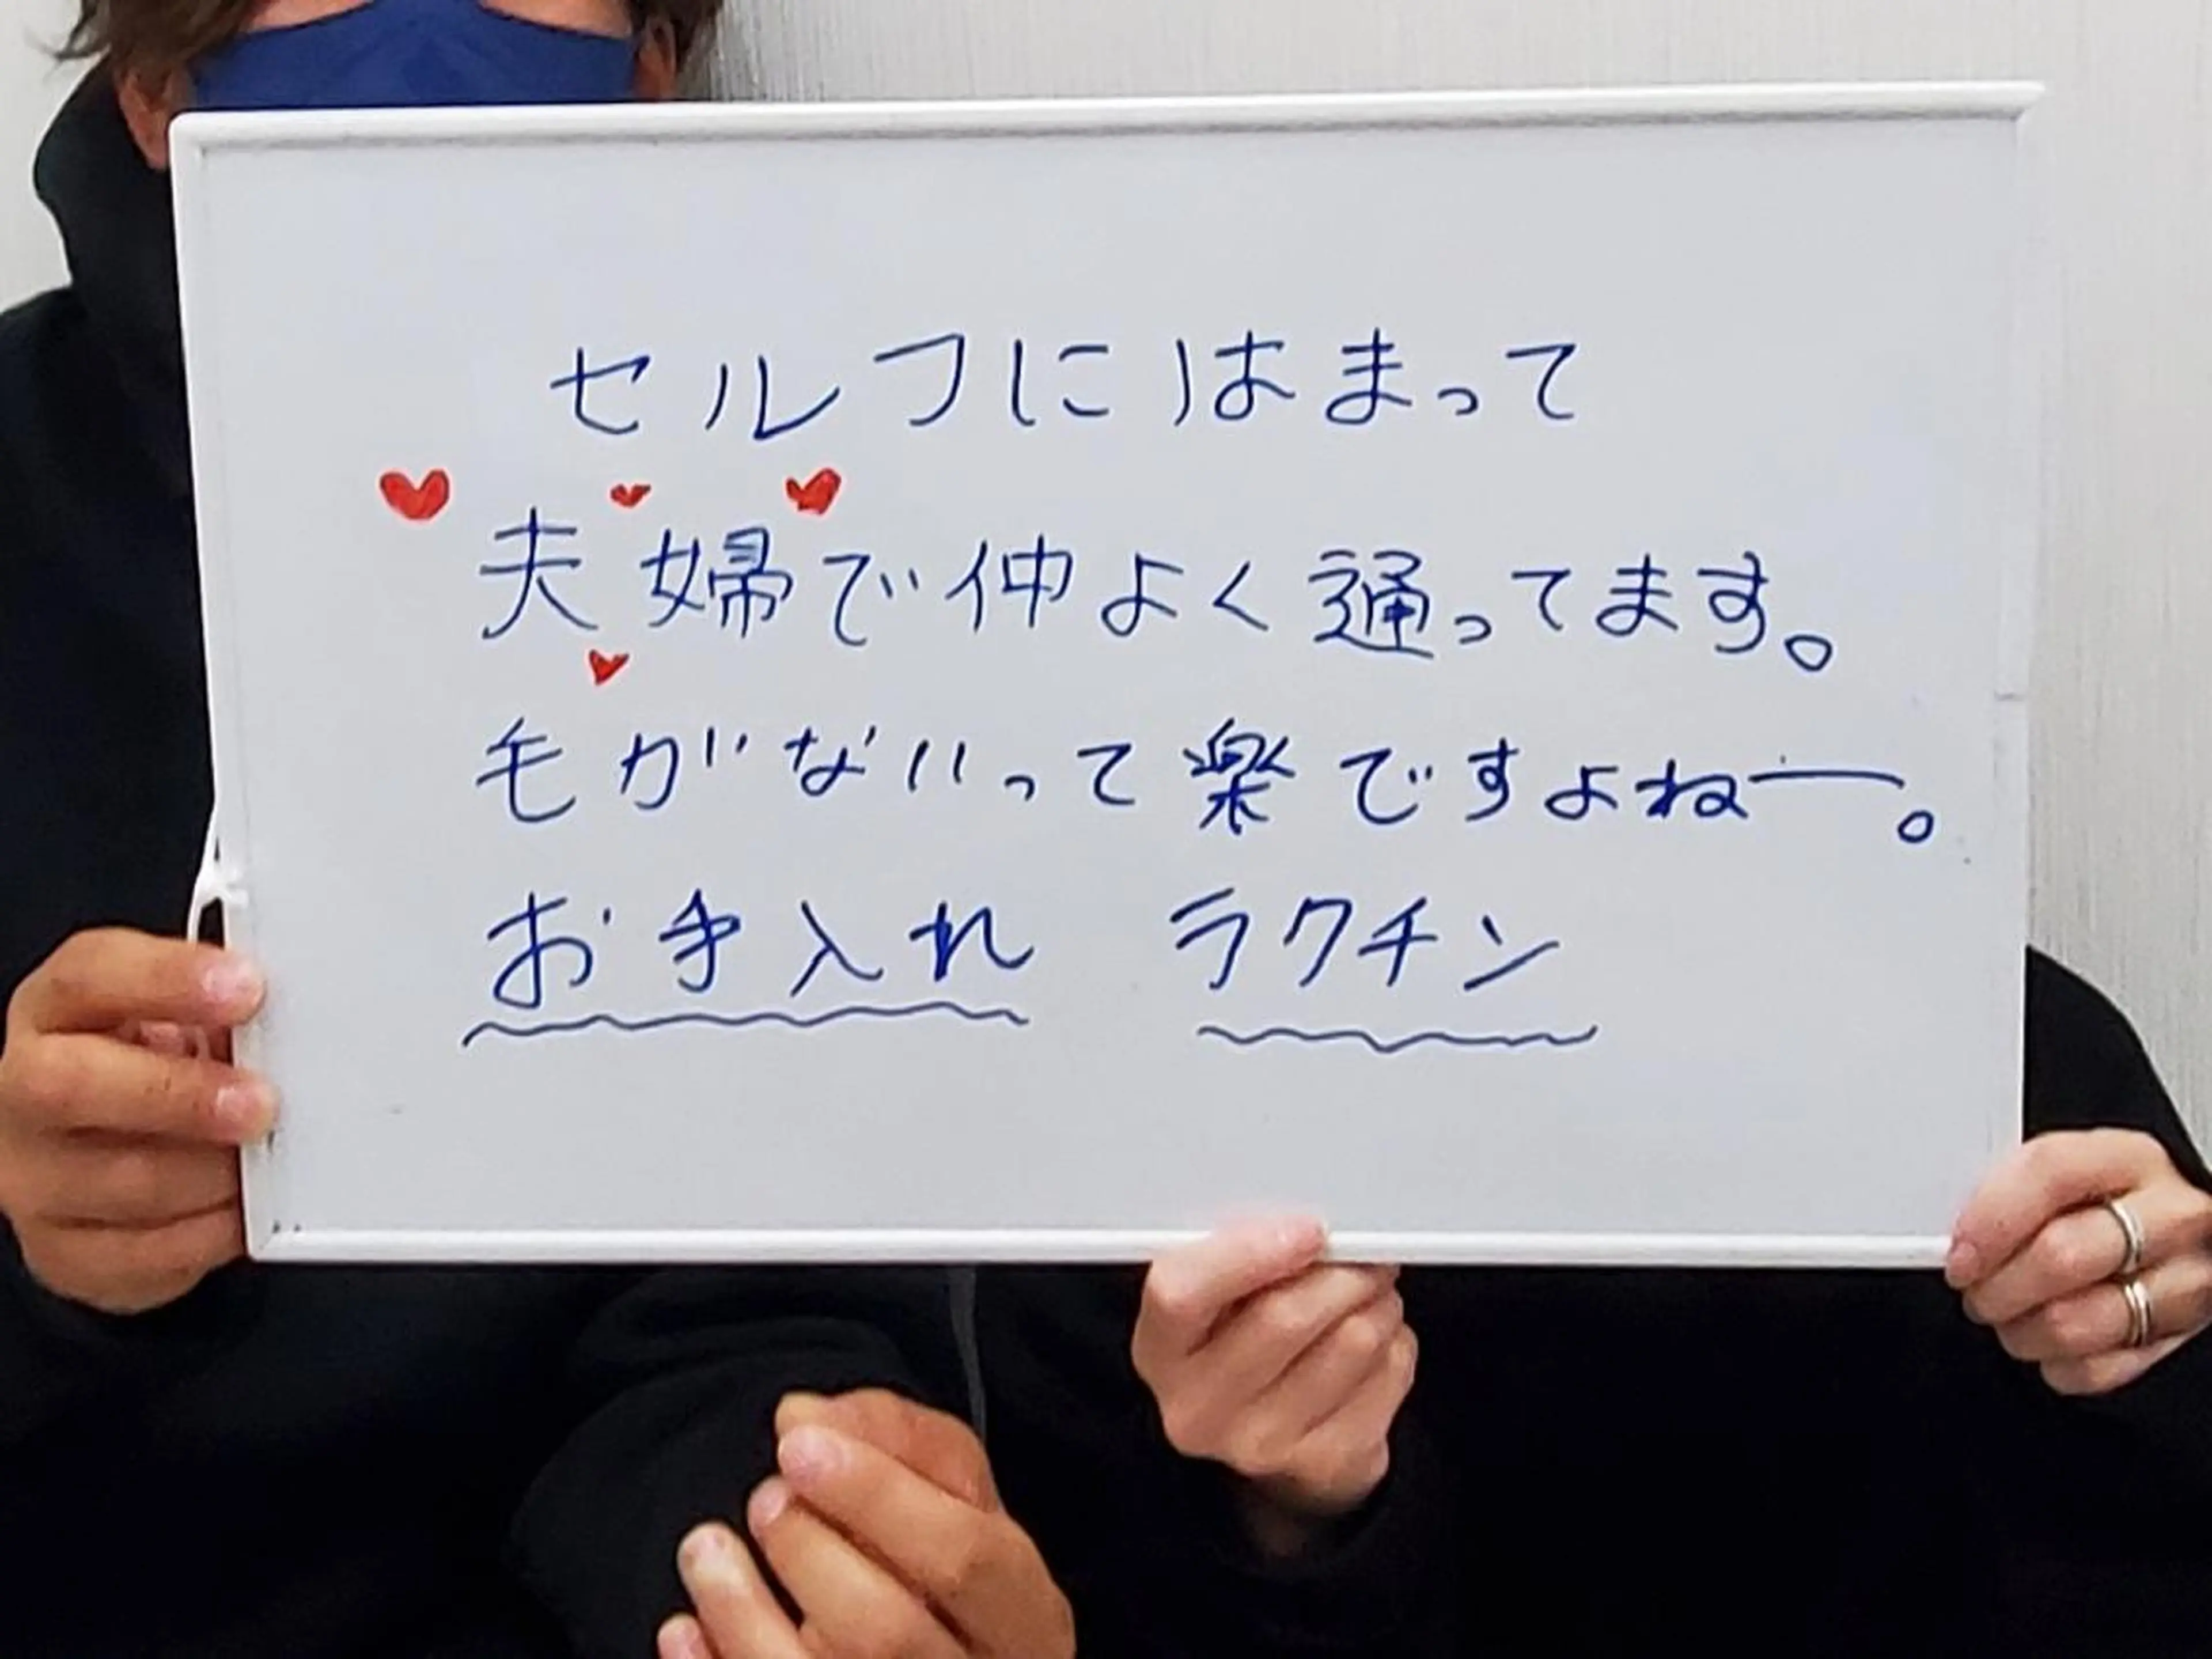 セルフにはまって
夫婦で仲よく通ってます。
毛がないって楽ですよねー。
お手入れ ラクチン